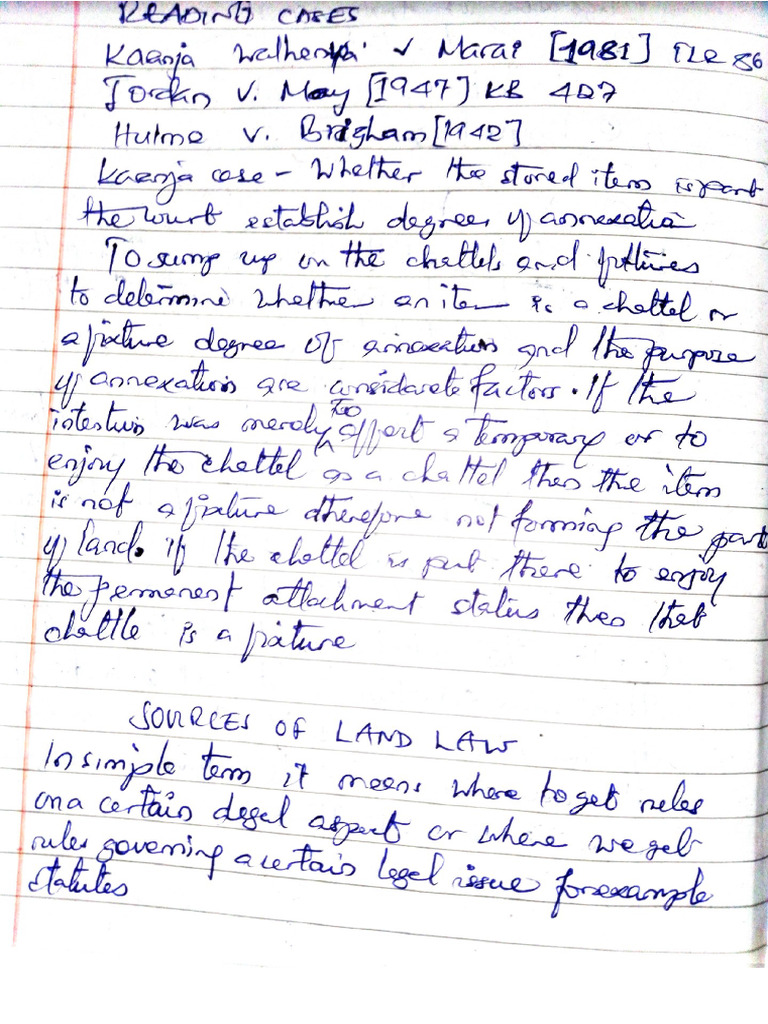 READING CASES
Kaanja Wathenya v Marai [1981] TLR 86
Jordan v. May [1947] KB 427
Hulme v. Brigham [1942]
Kaanja case - Whether the stored item is part
the court establish degrees of annexation
To sump up on the chattels and fixtures
to determine whether an item is a chattel or
a fixture degree of annexation and the purpose
of annexation are considarate factors. If the
intention was merely too affort a temporary or to
enjoy the chattel as a chattel then the item
is not a fixture therefore not forming the part
of land. if the chattel is put there to enjoy
the permanent attachment status then that
chattle is a fixture
SOURCES OF LAND LAW
In simple term it means where to get rules
on a certain legal aspect or where we get
rules governing a certain legal issue for example
statutes